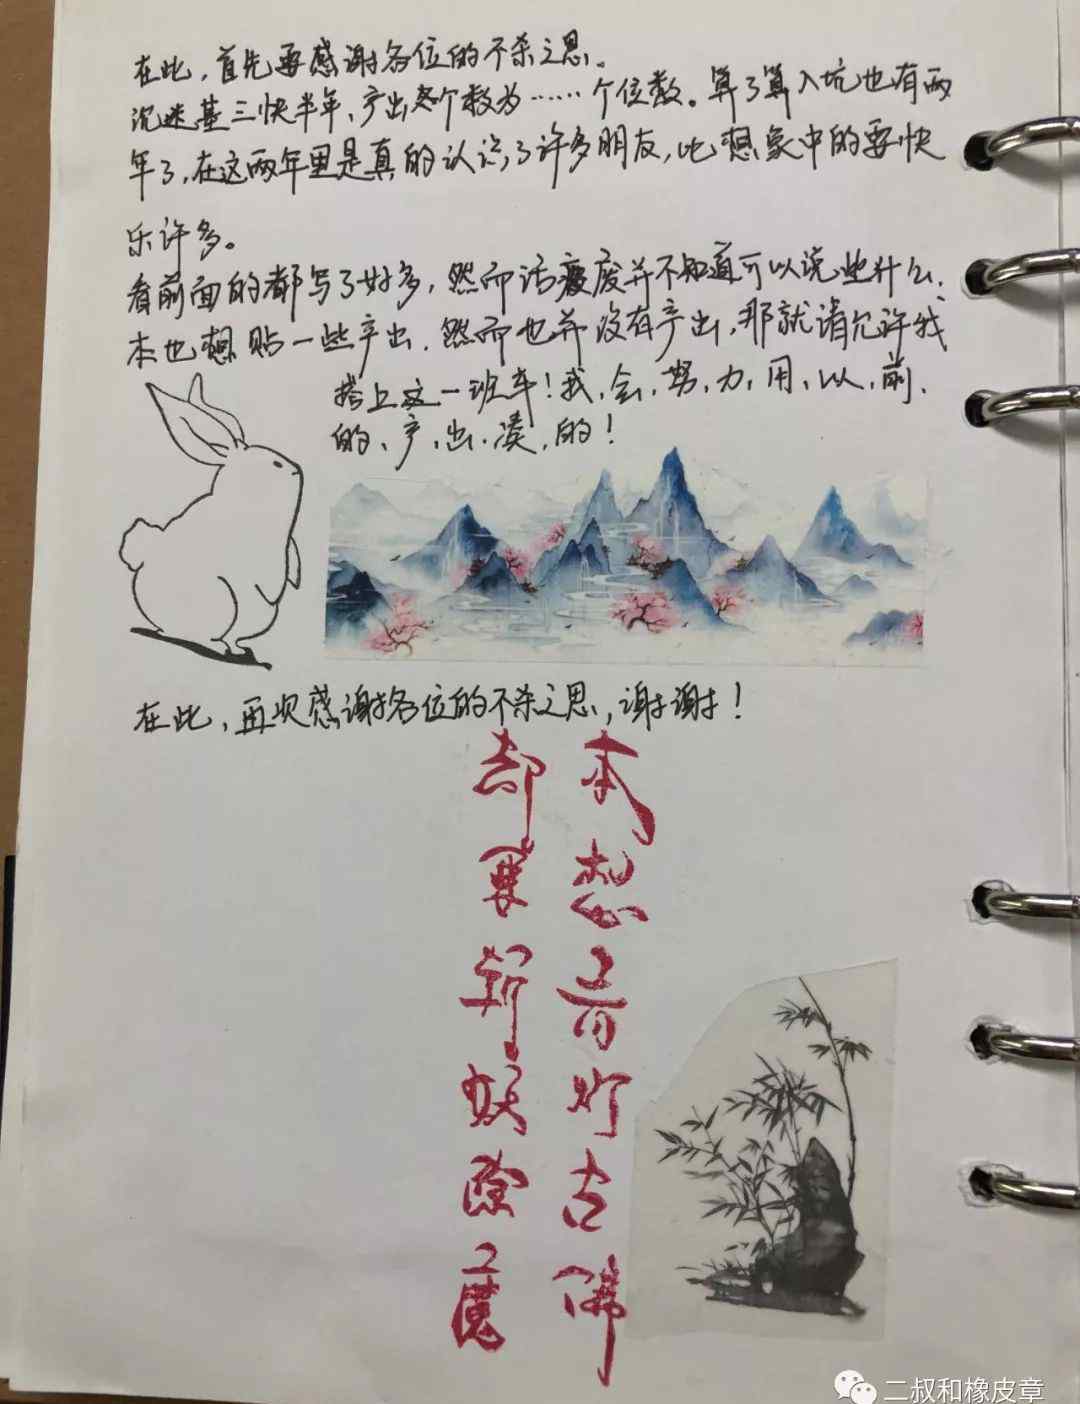 在此，首先要感谢各位的不杀之恩。
沉迷基三快半年，产出总个数为……个位数。算了算入坑也有两
年了，在这两年里是真的认识了许多朋友，比想象中的要快
乐许多。
看前面的都写了好多，然而话废并不知道可以说些什么，
本也想贴一些产出，然而也并没有产出，那就请允许我
搭上这一班车！我，会，努，力，用，以，前，
的，产，出，凑，的！
在此，再次感谢各位的不杀之恩，谢谢！
本想青灯古佛
却要斩妖除魔
二叔和橡皮章